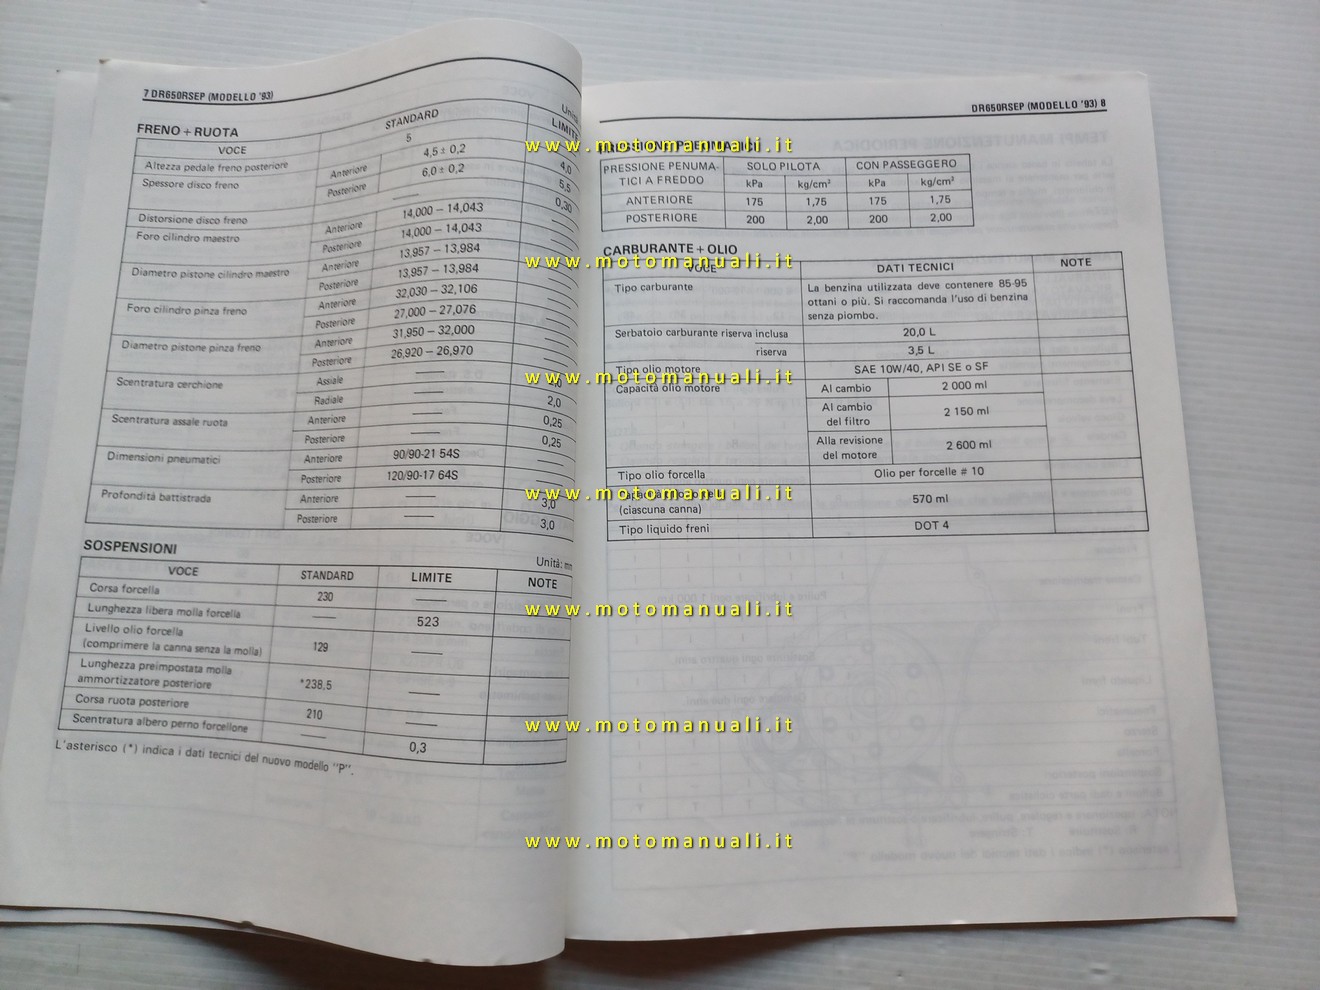 7 DR650RSEP (MODELLO '93)
FRENO + RUOTA
Unità:
VOCE STANDARD LIMITE
Altezza pedale freno posteriore 5
Spessore disco freno Anteriore 4,5 ± 0,2 4,0
Posteriore 6,0 ± 0,2 5,5
Distorsione disco freno —— 0,30
Foro cilindro maestro Anteriore 14,000 – 14,043 ——
Posteriore 14,000 – 14,043 ——
Diametro pistone cilindro maestro Anteriore 13,957 – 13,984 ——
Posteriore 13,957 – 13,984 ——
Foro cilindro pinza freno Anteriore 32,030 – 32,106 ——
Posteriore 27,000 – 27,076 ——
Diametro pistone pinza freno Anteriore 31,950 – 32,000 ——
Posteriore 26,920 – 26,970 ——
Scentratura cerchione Assiale ——
Radiale —— 2,0
Scentratura assale ruota Anteriore —— 0,25
Posteriore —— 0,25
Dimensioni pneumatici Anteriore 90/90-21 54S ——
Posteriore 120/90-17 64S ——
Profondità battistrada Anteriore —— 3,0
Posteriore —— 3,0
SOSPENSIONI
Unità: mm
VOCE STANDARD LIMITE NOTE
Corsa forcella 230 ——
Lunghezza libera molla forcella —— 523
Livello olio forcella
(comprimere la canna senza la molla) 129 ——
Lunghezza preimpostata molla
ammortizzatore posteriore *238,5 ——
Corsa ruota posteriore 210 ——
Scentratura albero perno forcellone —— 0,3
L'asterisco (*) indica i dati tecnici del nuovo modello "P".
DR650RSEP (MODELLO '93) 8
PRESSIONE PNEUMATICI
PRESSIONE PENUMA-
TICI A FREDDO SOLO PILOTA CON PASSEGGERO
kPa kg/cm² kPa kg/cm²
ANTERIORE 175 1,75 175 1,75
POSTERIORE 200 2,00 200 2,00
CARBURANTE + OLIO
VOCE DATI TECNICI NOTE
Tipo carburante La benzina utilizzata deve contenere 85-95
ottani o più. Si raccomanda l'uso di benzina
senza piombo.
Serbatoio carburante riserva inclusa 20,0 L
riserva 3,5 L
Tipo olio motore SAE 10W/40, API SE o SF
Capacità olio motore Al cambio 2 000 ml
Al cambio
del filtro 2 150 ml
Alla revisione
del motore 2 600 ml
Tipo olio forcella Olio per forcelle # 10
Capacità olio forcella
(ciascuna canna) 570 ml
Tipo liquido freni DOT 4
www.motomanuali.it
www.motomanuali.it
www.motomanuali.it
www.motomanuali.it
www.motomanuali.it
www.motomanuali.it
www.motomanuali.it